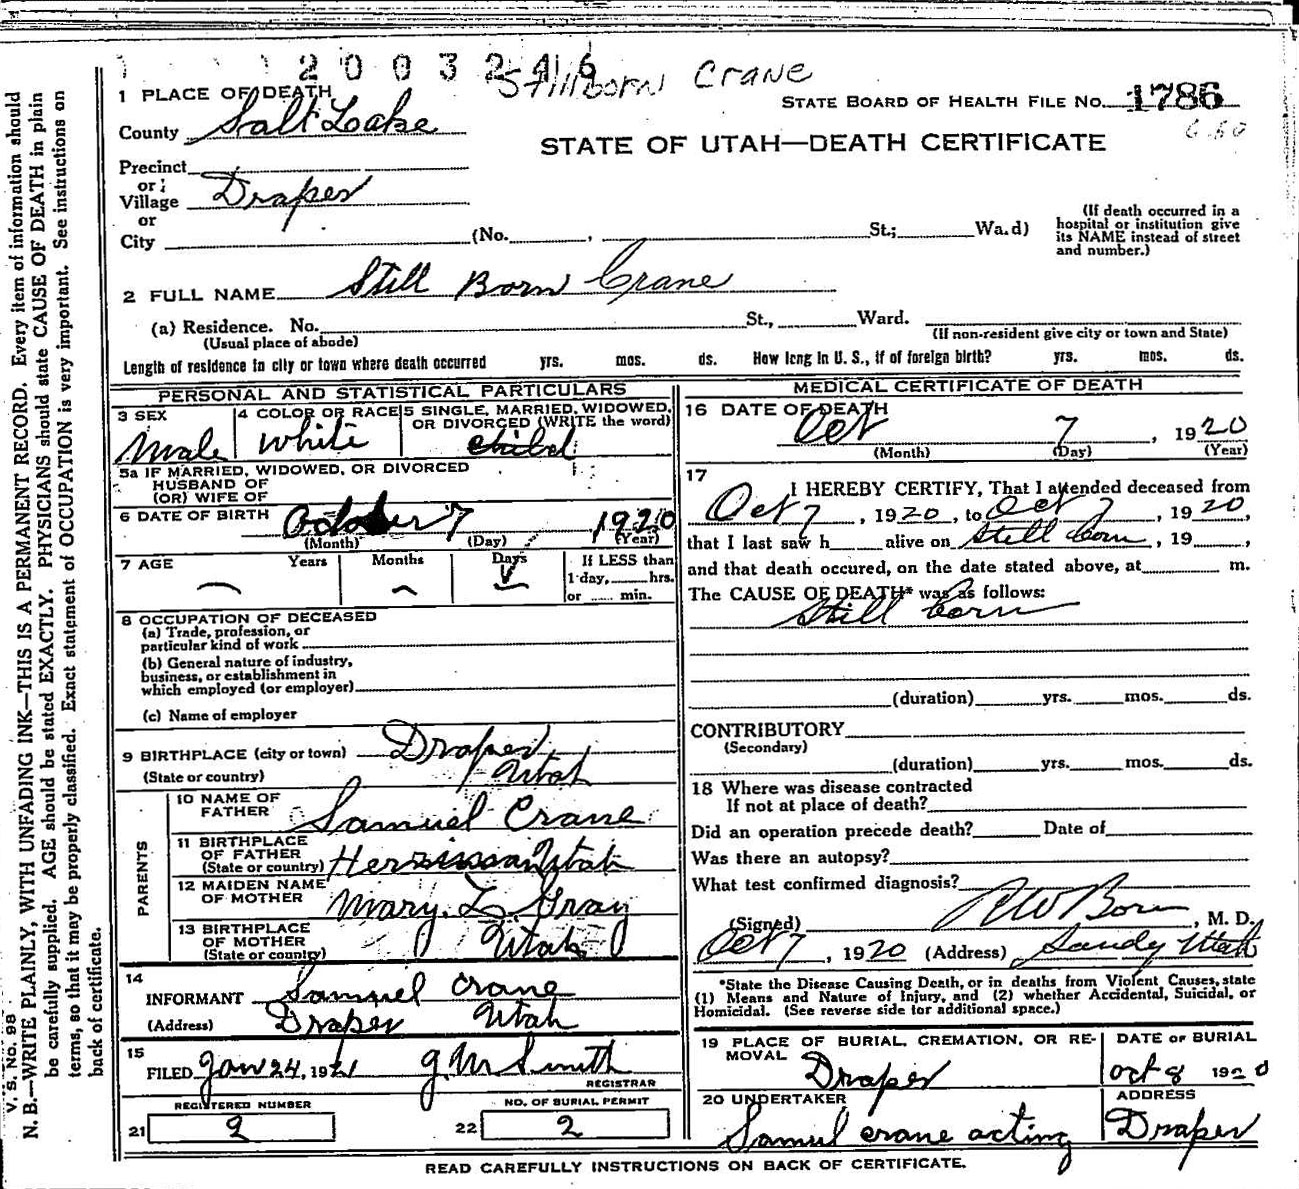 2003246
Stillborn Crane
1 PLACE OF DEATH
STATE BOARD OF HEALTH FILE No. 1786
County Salt Lake
STATE OF UTAH—DEATH CERTIFICATE
Precinct
or
Village Draper
or
City (No. , St.; Ward)
(If death occurred in a hospital or institution give its NAME instead of street and number.)
2 FULL NAME Still Born Crane
(a) Residence. No. St., Ward.
(Usual place of abode) (If non-resident give city or town and State)
Length of residence in city or town where death occurred yrs. mos. ds. How long in U. S., if of foreign birth? yrs. mos. ds.
PERSONAL AND STATISTICAL PARTICULARS
3 SEX Male
4 COLOR OR RACE White
5 SINGLE, MARRIED, WIDOWED, OR DIVORCED (WRITE the word) child
5a IF MARRIED, WIDOWED, OR DIVORCED
HUSBAND OF
(OR) WIFE OF
6 DATE OF BIRTH October 7 1920
(Month) (Day) (Year)
7 AGE Years Months Days If LESS than
1 day, hrs.
or min.
8 OCCUPATION OF DECEASED
(a) Trade, profession, or
particular kind of work
(b) General nature of industry,
business, or establishment in
which employed (or employer)
(c) Name of employer
9 BIRTHPLACE (city or town) Draper
(State or country) Utah
PARENTS
10 NAME OF FATHER Samuel Crane
11 BIRTHPLACE OF FATHER (State or country) Utah
12 MAIDEN NAME OF MOTHER Mary. L. Gray
13 BIRTHPLACE OF MOTHER (State or country) Utah
14
INFORMANT Samuel Crane
(Address) Draper Utah
15
FILED Jan 24, 1921 J M Smith
REGISTRAR
REGISTERED NUMBER
21 2
NO. OF BURIAL PERMIT
22 2
MEDICAL CERTIFICATE OF DEATH
16 DATE OF DEATH
Oct 7, 1920
(Month) (Day) (Year)
17
I HEREBY CERTIFY, That I attended deceased from
Oct 7, 1920, to Oct 7, 1920,
that I last saw h alive on Still born, 19 ,
and that death occured, on the date stated above, at m.
The CAUSE OF DEATH* was as follows:
Still born
(duration) yrs. mos. ds.
CONTRIBUTORY
(Secondary)
(duration) yrs. mos. ds.
18 Where was disease contracted
If not at place of death?
Did an operation precede death? Date of
Was there an autopsy?
What test confirmed diagnosis?
(Signed) , M. D.
Oct 7, 1920 (Address) Sandy Utah
*State the Disease Causing Death, or in deaths from Violent Causes, state
(1) Means and Nature of Injury, and (2) whether Accidental, Suicidal, or
Homicidal. (See reverse side for additional space.)
19 PLACE OF BURIAL, CREMATION, OR REMOVAL
Draper
DATE OF BURIAL
Oct 8 1920
20 UNDERTAKER
Samul crane acting
ADDRESS
Draper
READ CAREFULLY INSTRUCTIONS ON BACK OF CERTIFICATE.
V. S. No. 98
N. B.—WRITE PLAINLY, WITH UNFADING INK—THIS IS A PERMANENT RECORD. Every item of information should
be carefully supplied. AGE should be stated EXACTLY. PHYSICIANS should state CAUSE OF DEATH in plain
terms, so that it may be properly classified. Exact statement of OCCUPATION is very important. See instructions on
back of certificate.